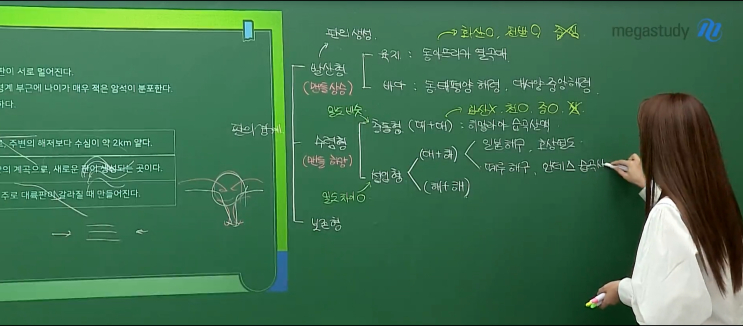 megastudy
판의 생성
화산O, 천발O,
판이 서로 멀어진다.
경계 부근에 나이가 매우 적은 암석이 분포한다.
하다.
주변의 해저보다 수심이 약 2km 얕다.
의 계곡으로, 새로운 판이 생성되는 곳이다.
주로 대륙판이 갈라질 때 만들어진다.
판의 경계
발산형
(맨틀 상승)
육지 : 동아프리카 열곡대
바다 : 동태평양 해령, 대서양 중앙해령
밀도비슷
화산X, 천O, 중O,
수렴형
(맨틀 하강)
충돌형 (대+대) : 히말라야 습곡산맥
섭입형
(대+해)
일본해구,
페루 해구, 안데스 습곡산
(해+해)
밀도차이O
보존형